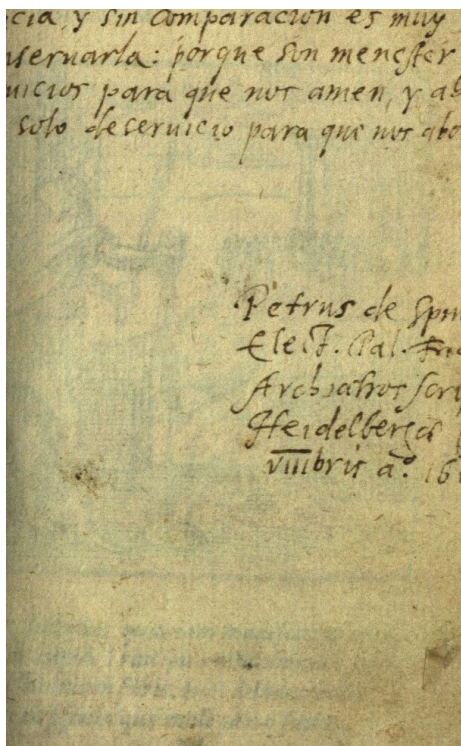 cia, y sin comparacion es muy
nseruarla: porque son menester
uicios para que nos amen, y
solo deseruicio para que nos abo
Petrus de Spin
Elect. Pal.
Archiatros scri
Heidelbergæ
VIIIbris aº. 16